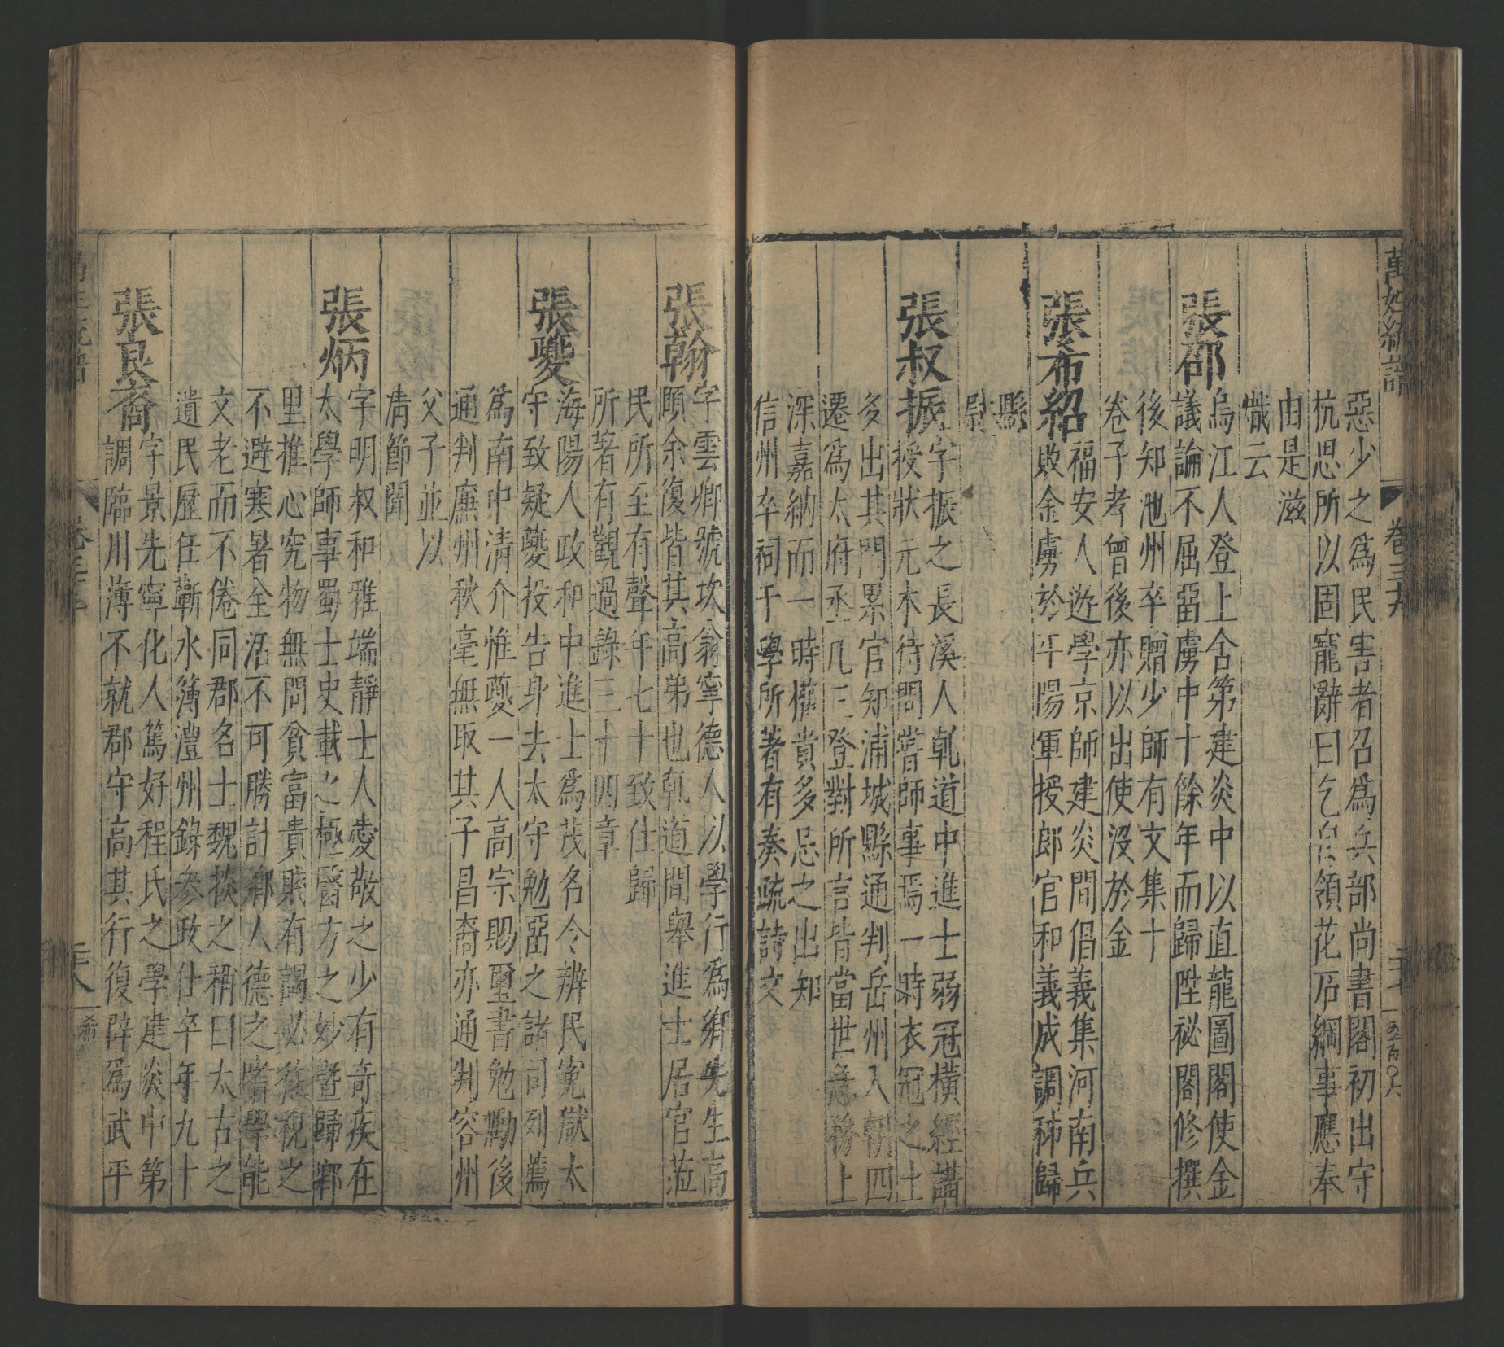 萬姓統譜
卷三十九
惡少之爲民害者召爲兵部尚書閣初出守
杭思所以固寵辭曰乞
領花石綱事應奉
由是滋
熾云
張邵
烏江人登上舍第建炎中以直龍圖閣使金
議論不屈畱虜中十餘年而歸陞祕閣修撰
後知池州卒贈少師有文集十
卷子孝曾後亦以出使没於金
張希紹
福安人遊學京師建炎間倡義集河南兵
敗金虜於平陽軍授郎官和義成調秭歸
縣
尉
張叔振
字振之長溪人乹道中進士弱冠橫經講
授狀元木待問嘗師事焉一時衣冠之士
多出其門累官知浦城縣通判岳州入朝四
遷爲太府丞凡三登對所言皆當世急務上
深嘉納而一時權貴多忌之出知
信州卒祠于學所著有奏疏詩文
張翰
字雲卿號坎翁寧德人以學行爲鄉先生高
頤余復皆其高弟也乹道間舉進士居官蒞
民所至有聲年七十致仕歸
所著有觀過錄三十四章
張夔
海陽人政和中進士爲茂名令辨民冤獄太
守致疑夔投告身去太守勉畱之諸司列薦
爲南中清介惟夔一人高宗賜璽書勉勵後
通判廉州秋毫無取其子昌裔亦通判容州
父子並以
清節聞
張炳
字明叔和雅端靜士人愛敬之少有奇疾在
太學師事蜀士史載之極醫方之妙曁歸鄉
里推心究物無問貧富貴賤有謁必
視之
不避寒暑全活不可勝計鄉人德之
學能
文老而不倦同郡名士魏掞之稱曰太古之
遺民歷任蘄水簿澧州錄參致仕卒年九十
張良裔
字景先寧化人篤好程氏之學建炎中第
調臨川薄不就郡守高其行復辟爲武平